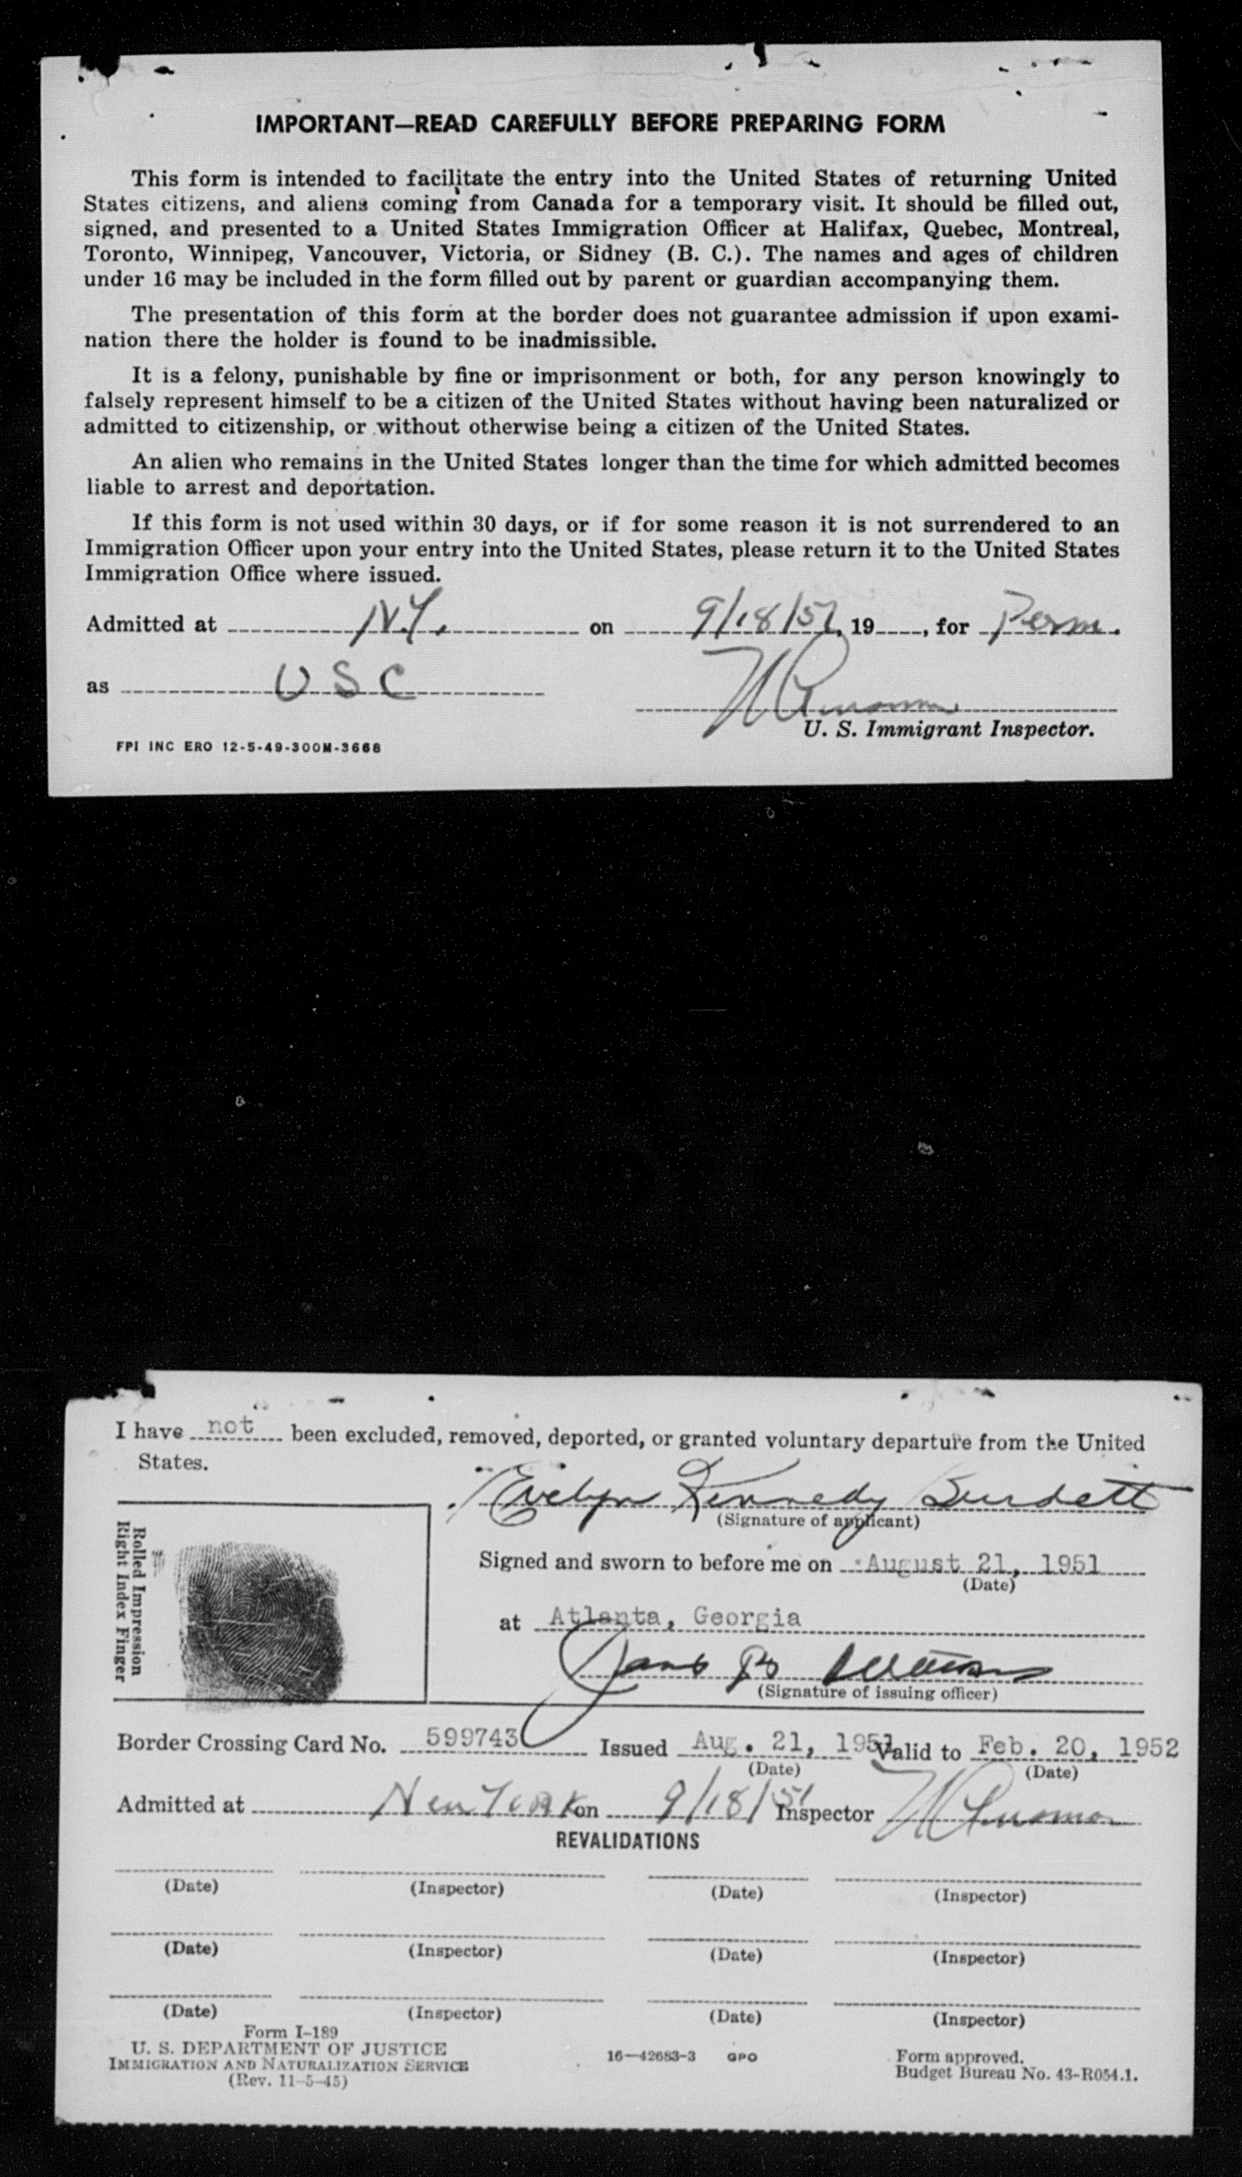 IMPORTANT—READ CAREFULLY BEFORE PREPARING FORM
This form is intended to facilitate the entry into the United States of returning United
States citizens, and aliens coming from Canada for a temporary visit. It should be filled out,
signed, and presented to a United States Immigration Officer at Halifax, Quebec, Montreal,
Toronto, Winnipeg, Vancouver, Victoria, or Sidney (B. C.). The names and ages of children
under 16 may be included in the form filled out by parent or guardian accompanying them.
The presentation of this form at the border does not guarantee admission if upon exami-
nation there the holder is found to be inadmissible.
It is a felony, punishable by fine or imprisonment or both, for any person knowingly to
falsely represent himself to be a citizen of the United States without having been naturalized or
admitted to citizenship, or without otherwise being a citizen of the United States.
An alien who remains in the United States longer than the time for which admitted becomes
liable to arrest and deportation.
If this form is not used within 30 days, or if for some reason it is not surrendered to an
Immigration Officer upon your entry into the United States, please return it to the United States
Immigration Office where issued.
Admitted at N.Y. on 9/18/51, 19, for Perm.
as USC
U. S. Immigrant Inspector.
FPI INC ERO 12-5-49-300M-3668
I have not been excluded, removed, deported, or granted voluntary departure from the United
States.
Evelyn Kennedy Burdett
(Signature of applicant)
Rolled Impression
Right Index Finger
Signed and sworn to before me on August 21, 1951
(Date)
at Atlanta, Georgia
(Signature of issuing officer)
Border Crossing Card No. 599743 Issued Aug. 21, 1951 Valid to Feb. 20, 1952
(Date) (Date)
Admitted at New York on 9/18/51 Inspector
REVALIDATIONS
(Date) (Inspector) (Date) (Inspector)
(Date) (Inspector) (Date) (Inspector)
(Date) (Inspector) (Date) (Inspector)
Form I-189
U. S. DEPARTMENT OF JUSTICE
IMMIGRATION AND NATURALIZATION SERVICE
(Rev. 11-5-45)
16—42683-3 GPO
Form approved.
Budget Bureau No. 43-R054.1.